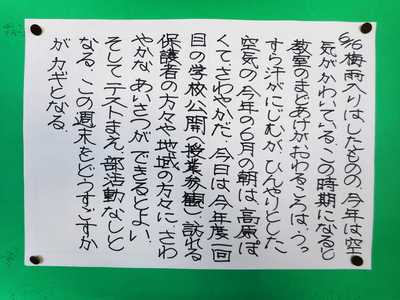 6/6梅雨入りはしたものの、今年は空
気がかわいている。この時期になると
教室のまどあけがおわるころは、うっ
すら汗がにじむが、ひんやりとした
空気の今年の6月の朝は、高原っぽ
くて、さわやかだ。今日は、今年度一回
目の学校公開(授業参観)、訪れる
保護者の方々や地域の方々に、さわ
やかな、あいさつが、できるとよい。
そして、テストまえ、部活動なしと
なる、この週末をどうすごすか
が、カギとなる。